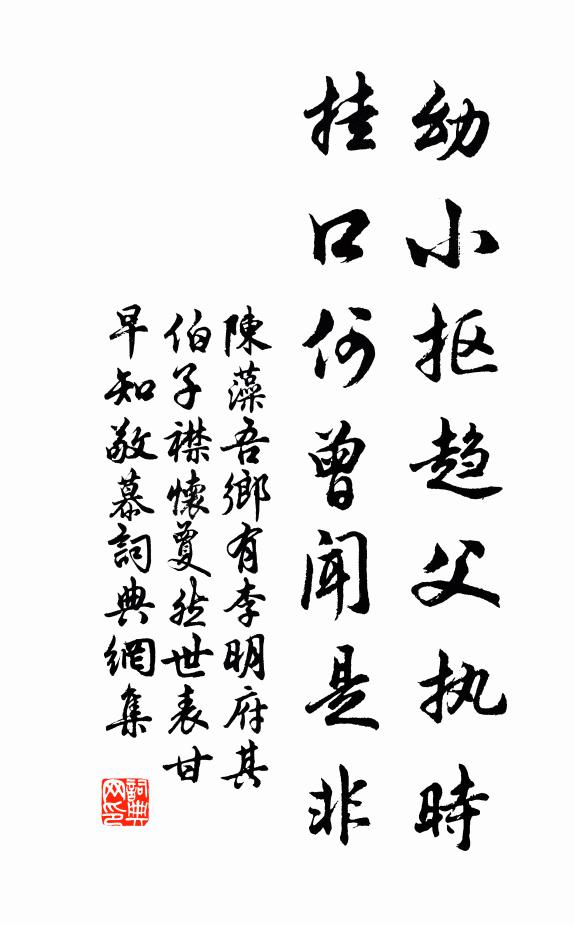 幼小抠趋父执時
挂口何曾闻是非
陳藻吾鄉有李明府其
伯子襟懷夐然世表甘
早知敬慕詞典網集
詞典网印